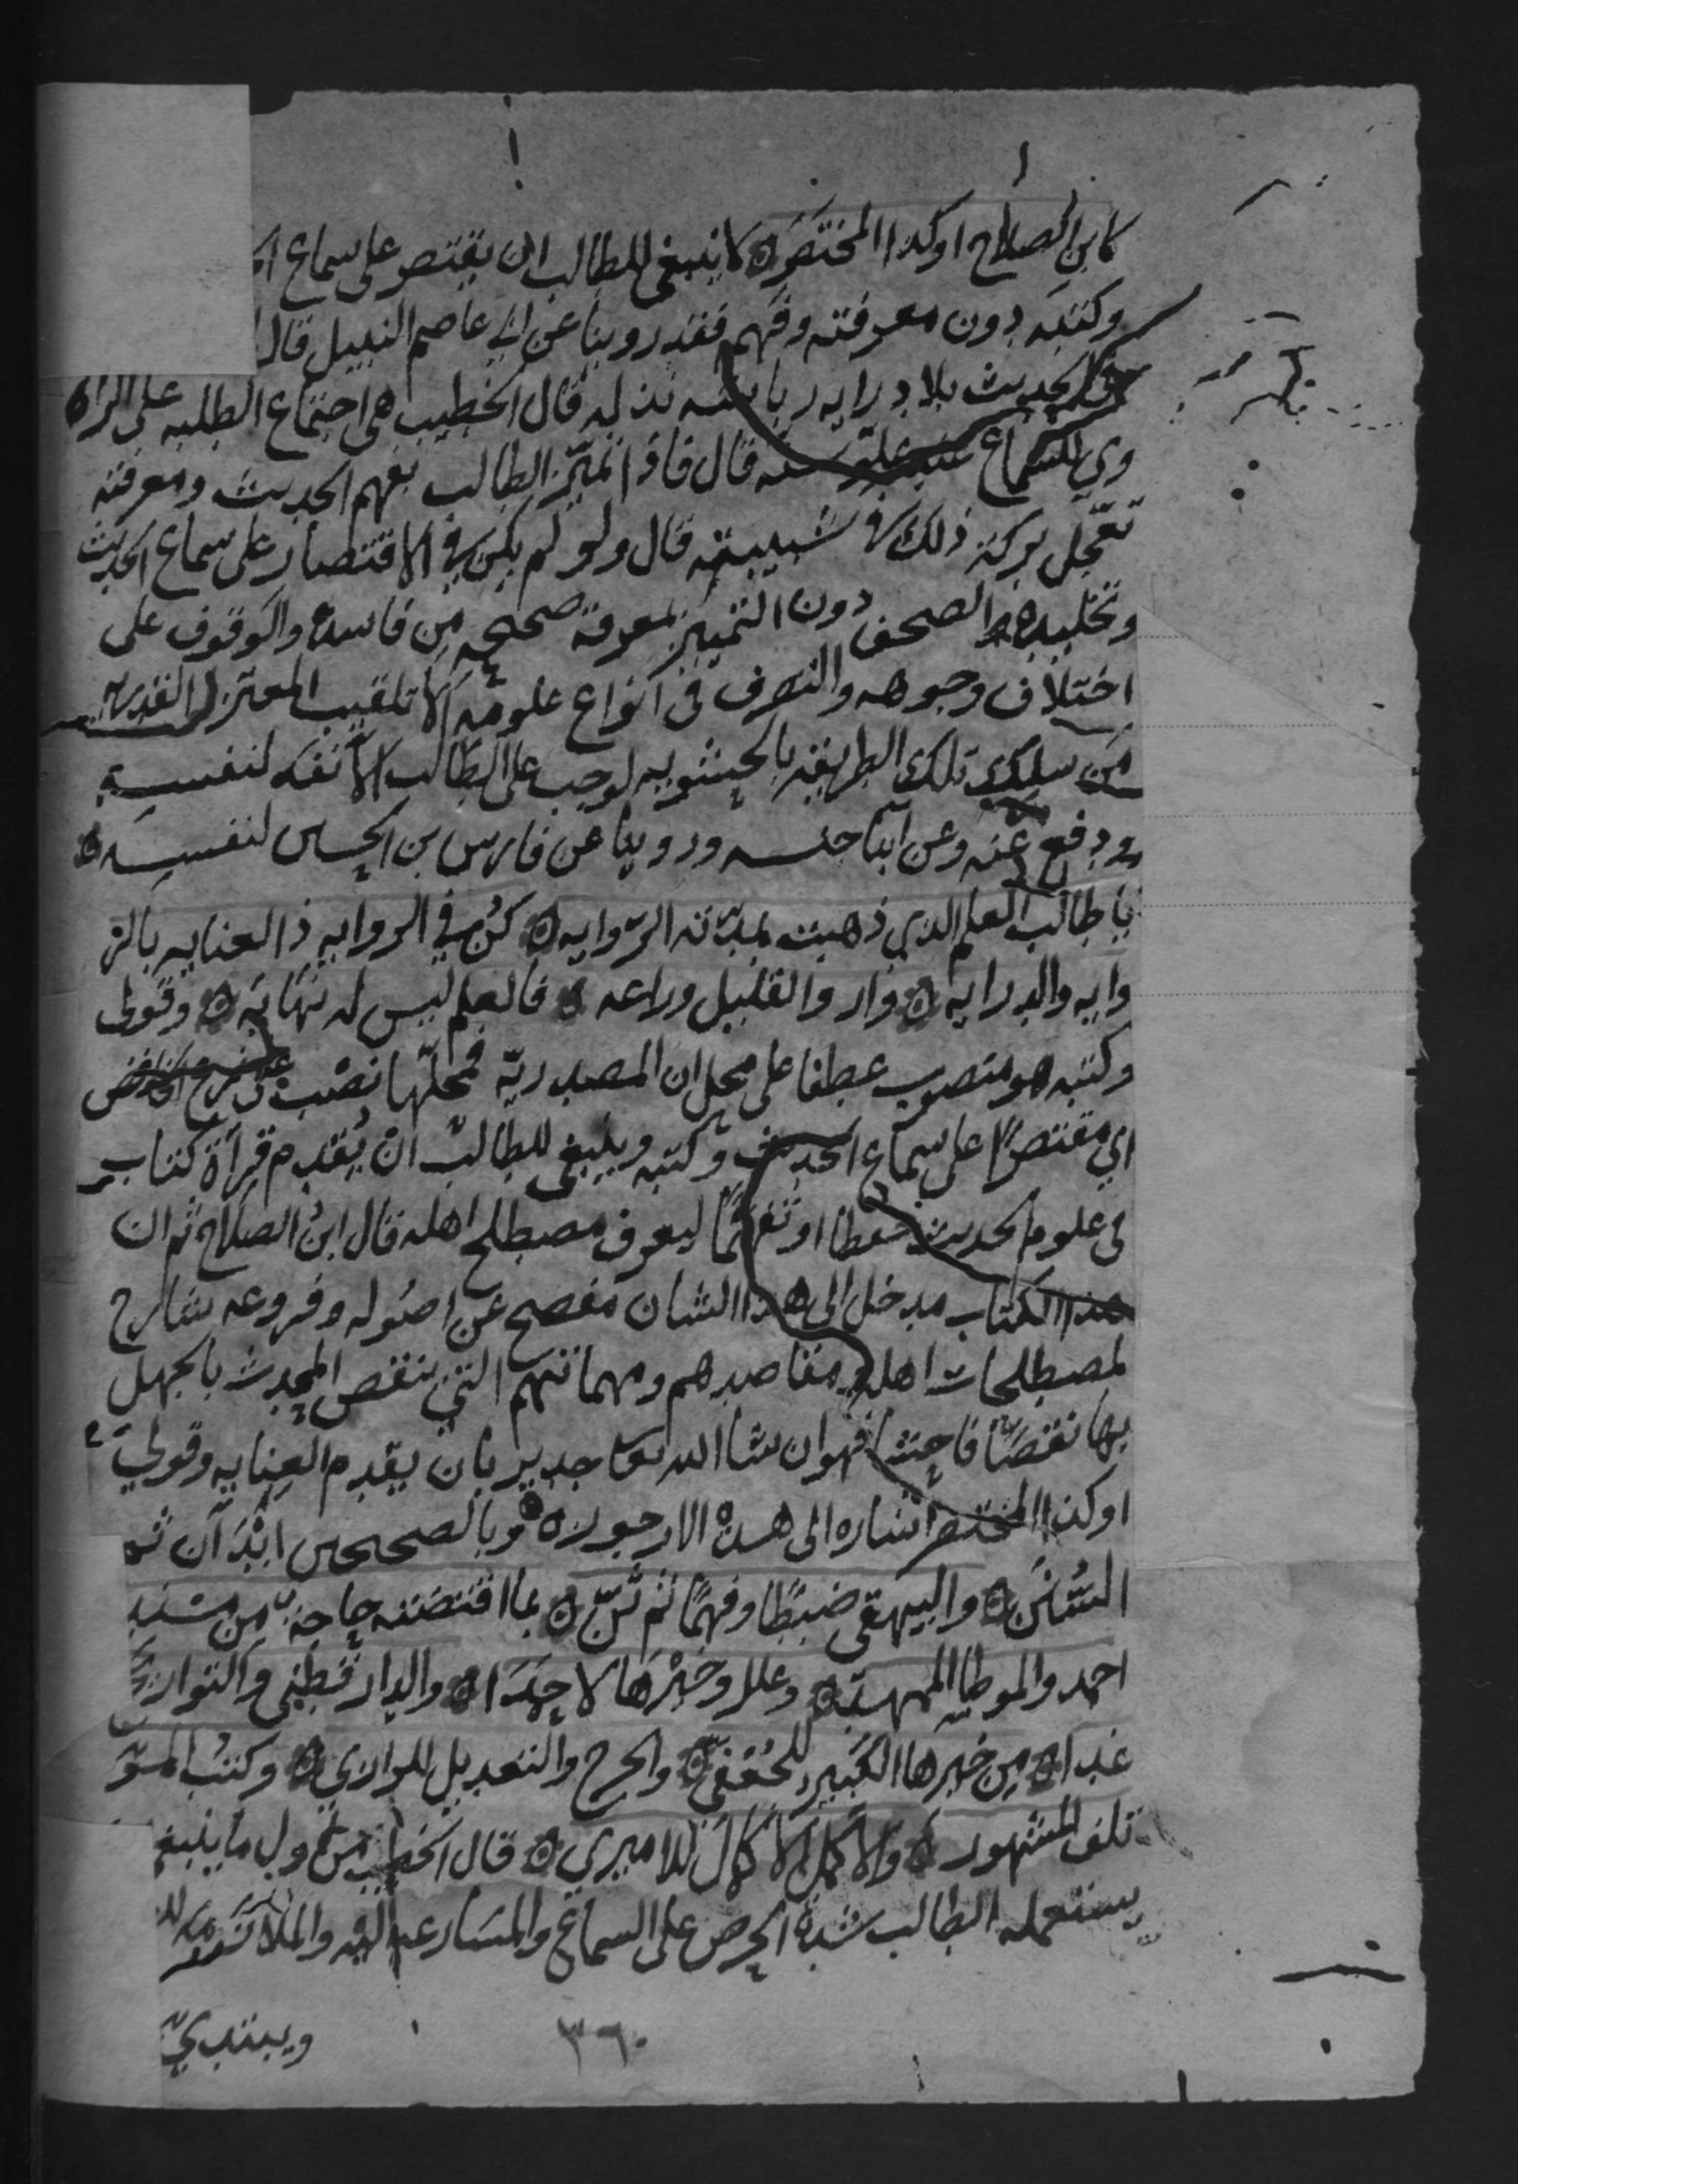 كابن الصلاح او كذا المختصر ه لا ينبغي للطالب ان يقتصر على سماع
وكتبه دون معرفته وفهمه فقد روينا عن ابي عاصم النبيل قال
الحديث بلا درايه رياسه نذله قال الخطيب هي اجتماع الطلبه على الراوي
للسماع عند علو سنه قال فاذا تميز الطالب بفهم الحديث ومعرفته
تعجل بركة ذلك في شبيبته قال ولو لم يكن في الاقتصار على سماع الحديث
وتخليده الصحف دون التمييز بمعرفة صحيحه من فاسده والوقوف على
اختلاف وجوهه والتصرف في انواع علومه الا تلقيب المعتزله القدريه
من سلك تلك الطريقه بالحشويه لوجب على الطالب الانفه لنفسه
ودفع عنه وعن ابنا جنسه وروينا عن فارس بن الحسين لنفسه ه
يا طالب العلم الذي ذهبت بمدته الروايه ه كن في الروايه ذا العنايه بالر
وايه والدرايه ه وارو القليل وراعه ه فالعلم ليس له نهايه ه وقولي
وكتبه هو منصوب عطفا على محل ان المصدريه فمحلها نصب على نزع الخافض
اي مقتصرا على سماع الحديث وكتبه وينبغي للطالب ان يقدم قرأة كتاب
في علوم الحديث حفظا او تفهما ليعرف مصطلح اهله قال ابن الصلاح ثم ان
هذا الكتاب مدخل الى هذا الشان مفصح عن اصوله وفروعه شارح
لمصطلحات اهله ومقاصدهم ومهماتهم التي ينقص المحدث بالجهل
بها نقصا فاحشا فهو ان شا الله تعا جدير بان يقدم العنايه وقولي
او كذا المختصر اشاره الى هذه الارجوزه ه وبالصحيحين ابدأن ثم
السنن ه والبيهقي ضبطا وفهما ثم ثن ه بما اقتضته حاجة من مسند
احمد والموطا الممهد ه وعلل وخيرها لاحمدا ه والدارقطني والتواريخ
غدا ه من خيرها الكبير للجعفي ه والجرح والتعديل للرازي ه وكتب المؤ
تلف المشهور ه والاكمل الاكمال للاميري ه قال الخطيب من اول ما ينبغي
يستعمله الطالب شدة الحرص على السماع والمسارعه اليه والملازمه
ويبتدي
٣٦٠